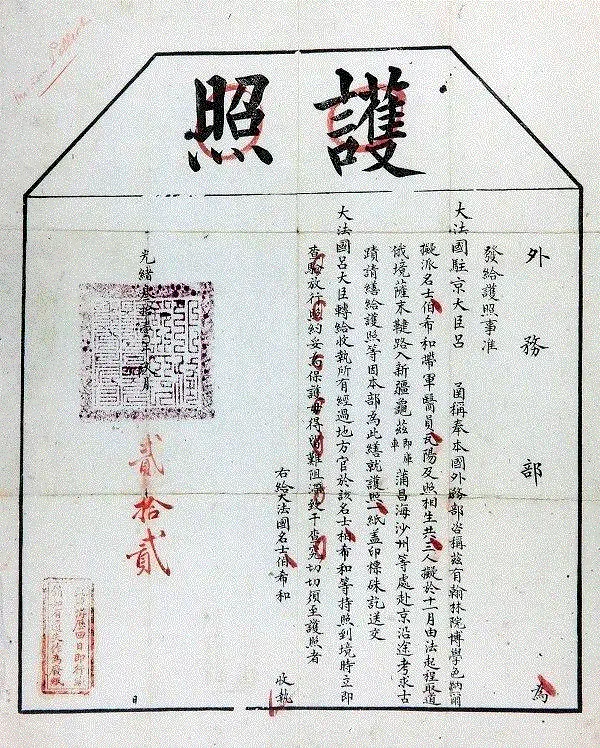 護照
外務部 為
發給護照事准
大法國駐京大臣呂 函稱奉本國外務部咨稱茲有翰林院博學色納爾
擬派名士伯希和帶軍醫員瓦陽及照相生共三人擬於十一月由法起程取道
俄境薩末鞬路入新疆龜茲即庫車蒲昌海沙州等處赴京沿途考求古
蹟請繕給護照等因本部為此繕就護照一紙蓋印標硃訖送交
大法國呂大臣轉給收執所有經過地方官於該名士伯希和等持照到境時立即
查驗放行照約妥為保護毋得留難阻滯致干查究切切須至護照者
右給大法國名士伯希和 收執
光緒叁拾壹年 月
貳拾貳
日